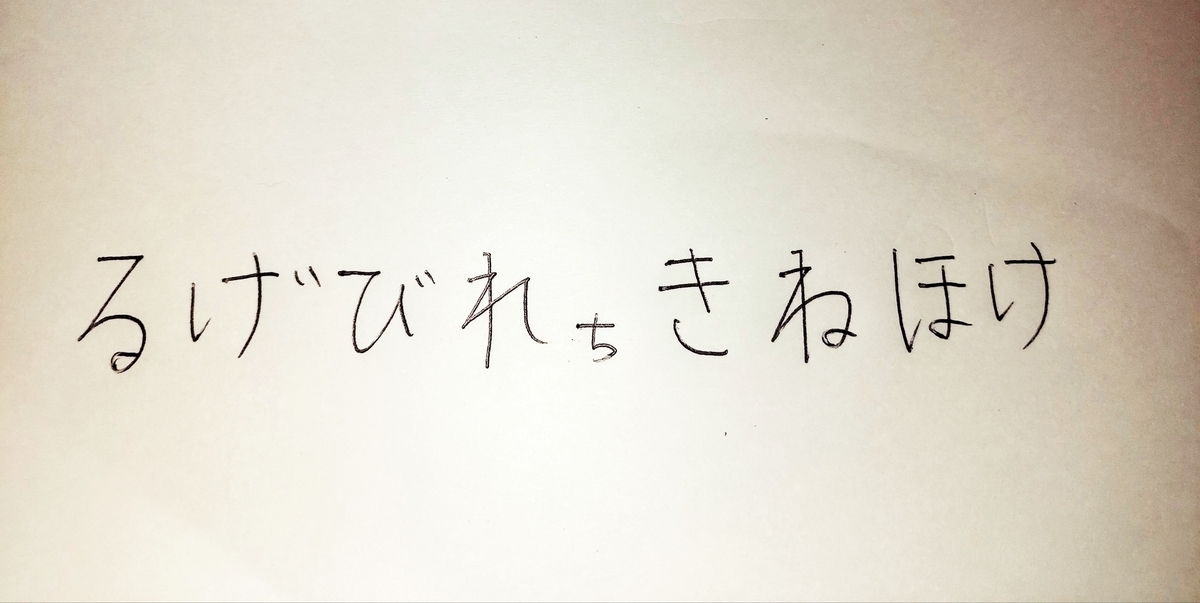 るげびれちきねほけ